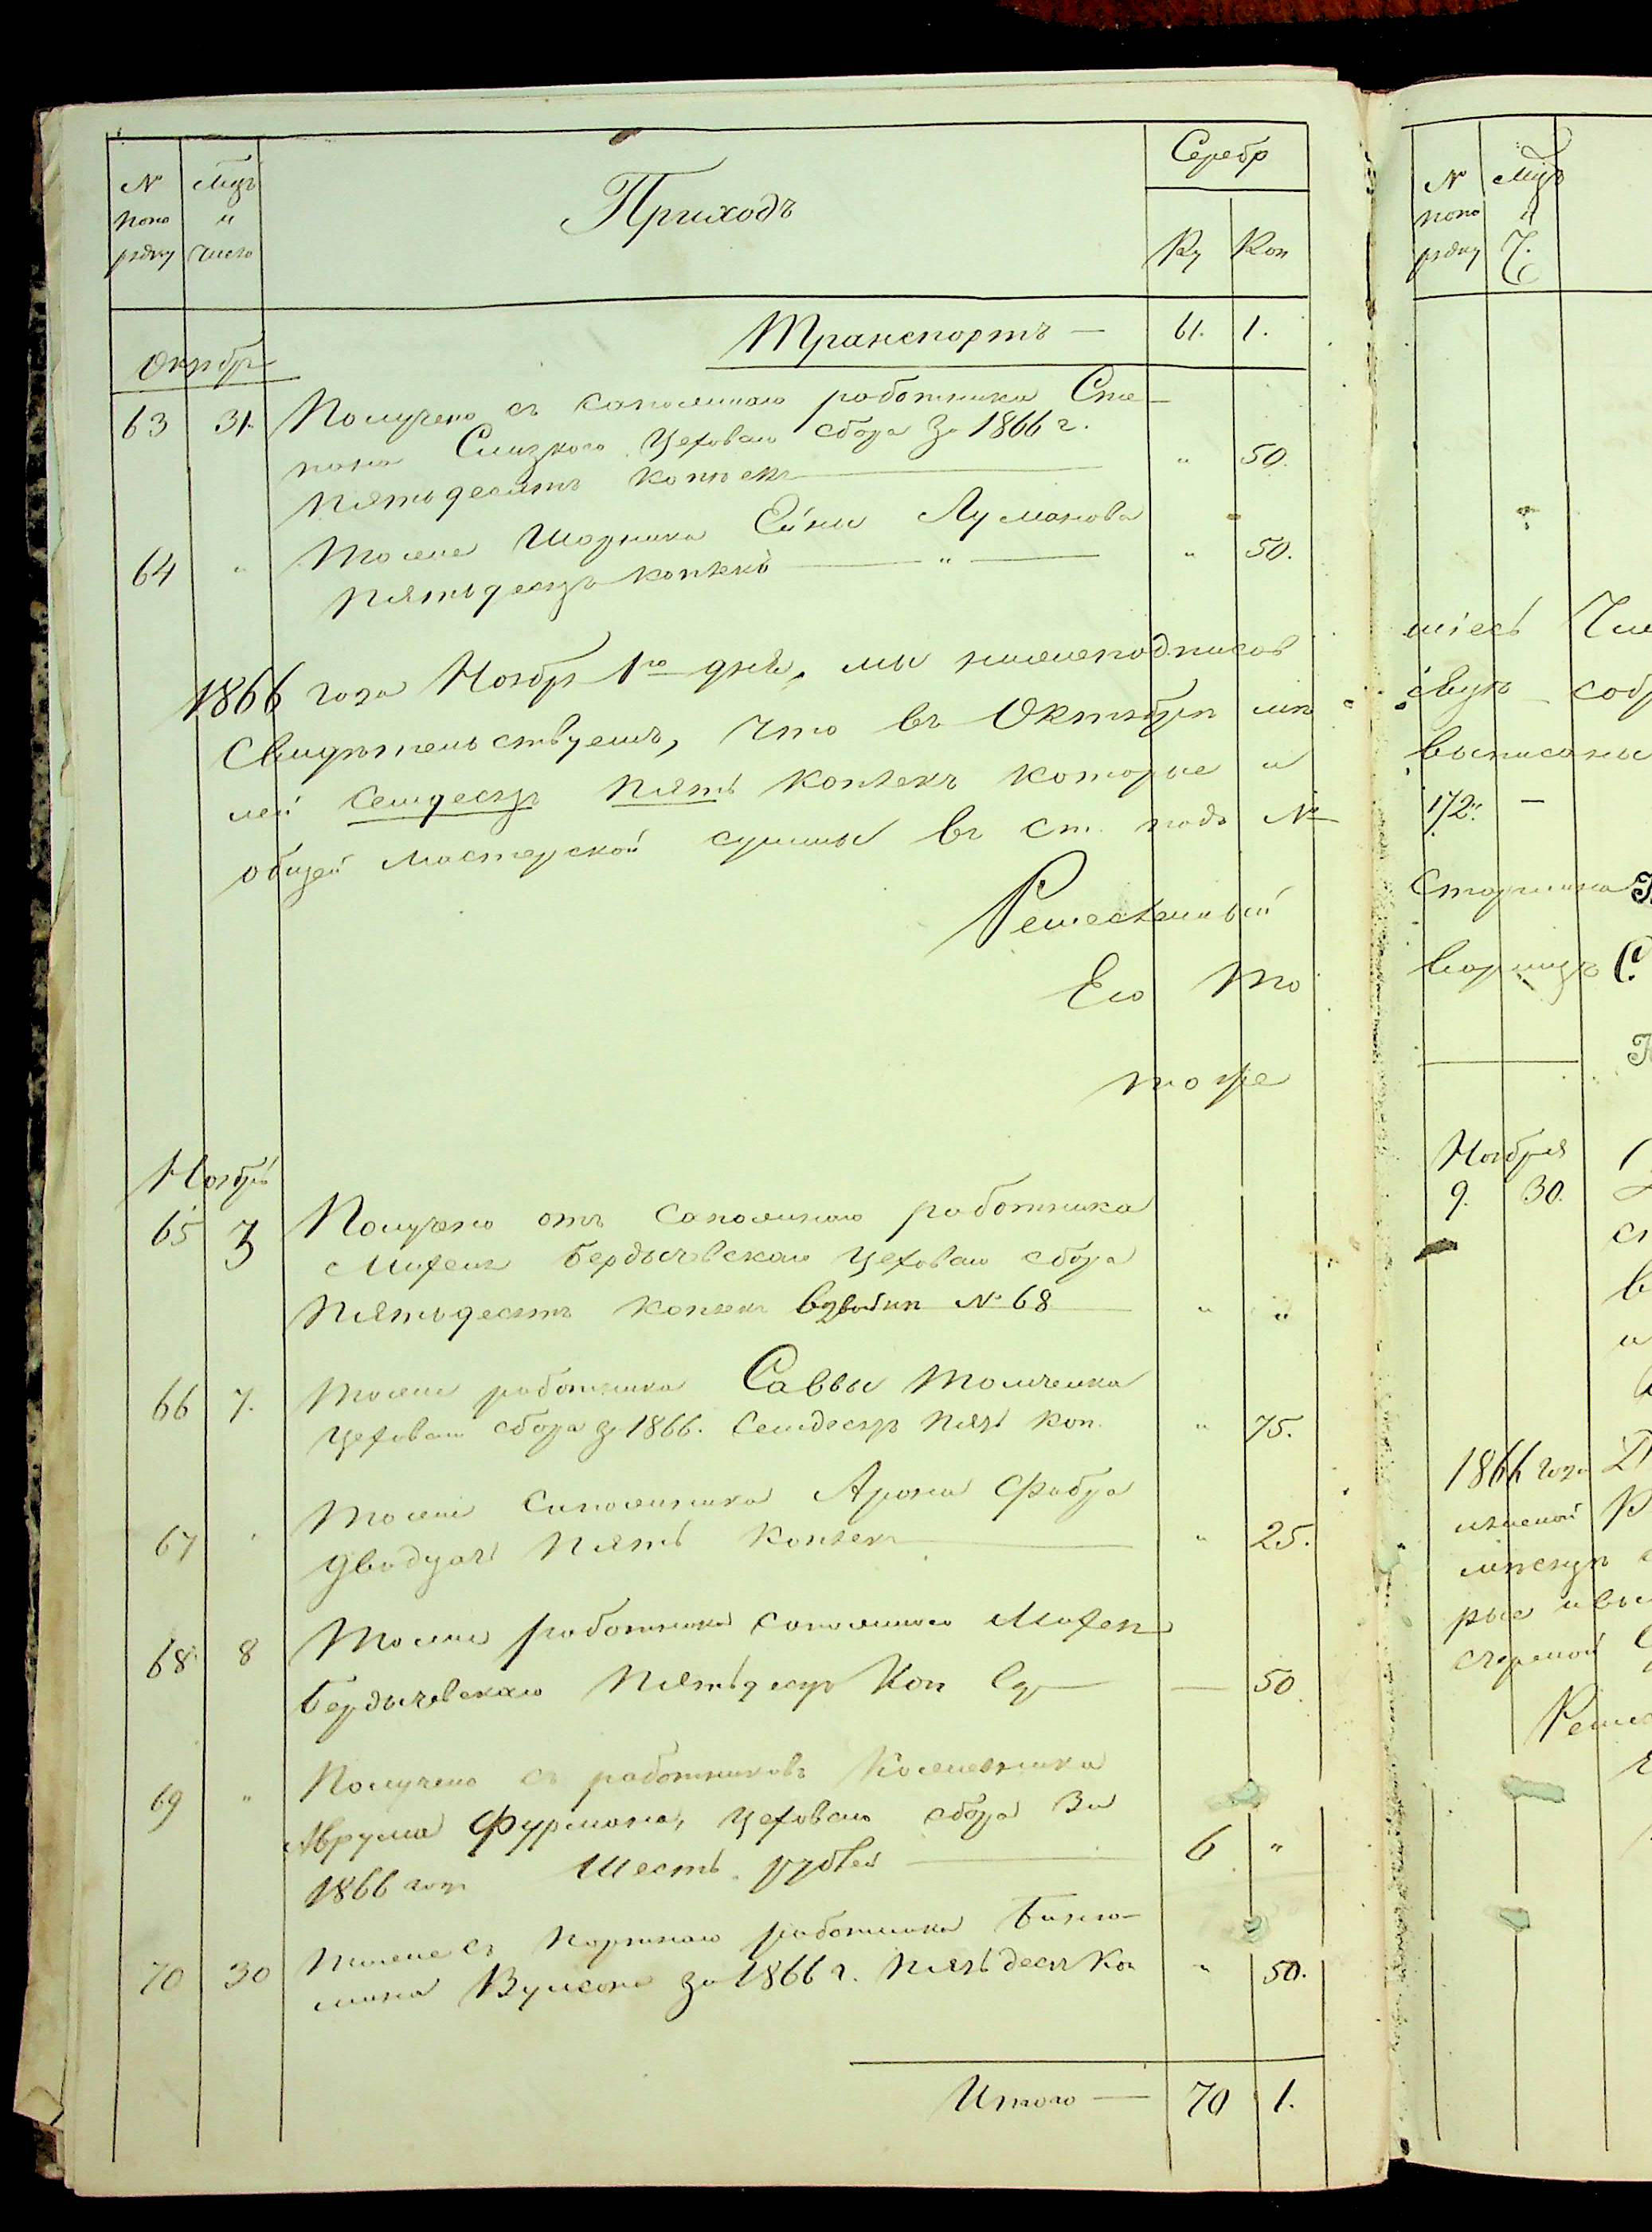 N Мцъ Приходъ Серебр
попо и
рядку число Ру Коп
Транспортъ — 61. 1.
Октябр
63 31. Получено съ сапожнаго работника Сте-
пана Слизкого Цеховаго сбора За 1866 г.
пятьдесятъ копѣекъ — " 50.
64 " Тоже Шорника Сйки Луманова
пятьдесятъ копѣекъ — " — " 50.
1866 года Ноябр 1го дня, мы нижеподписав
Свидѣтельствуемъ, что въ Октябрѣ мѣ
лей семдесятъ пять копѣекъ которые и
общей мастерской суммы въ ст. подъ №
Ремесленный
Его То
тоже
Ноябрь
65 3 Получено отъ сапожнаго работника
Михеля Бердычевскаго Цеховаго сбора
пятьдесятъ копѣекъ № 68 — " "
66 7. Тоже работника Саввы Томченка
Цеховаго сбора за 1866. Семдесятъ пять коп. " 75.
67 " Тоже Сапожника Арона Фабра
двадцать пять копѣекъ — " 25.
68 8 Тоже работника сапожнаго Михеля
Бердычевскаго Пятьдесятъ Коп Ср — — 50
69 " Получено съ работниковъ Кожевника
Аврума Фурмана, Цеховаго сбора За
1866 годъ Шесть рублей — 6 "
70 30 Тоже съ портнаго работника Биню-
мина Вульфона за 1866 г. пятьдесятъ Коп " 50.
Итого — 70 1.
N Мцъ
попо и
рядку Ч.
172. —
Старшина
Ноября
9. 30.
1866 года